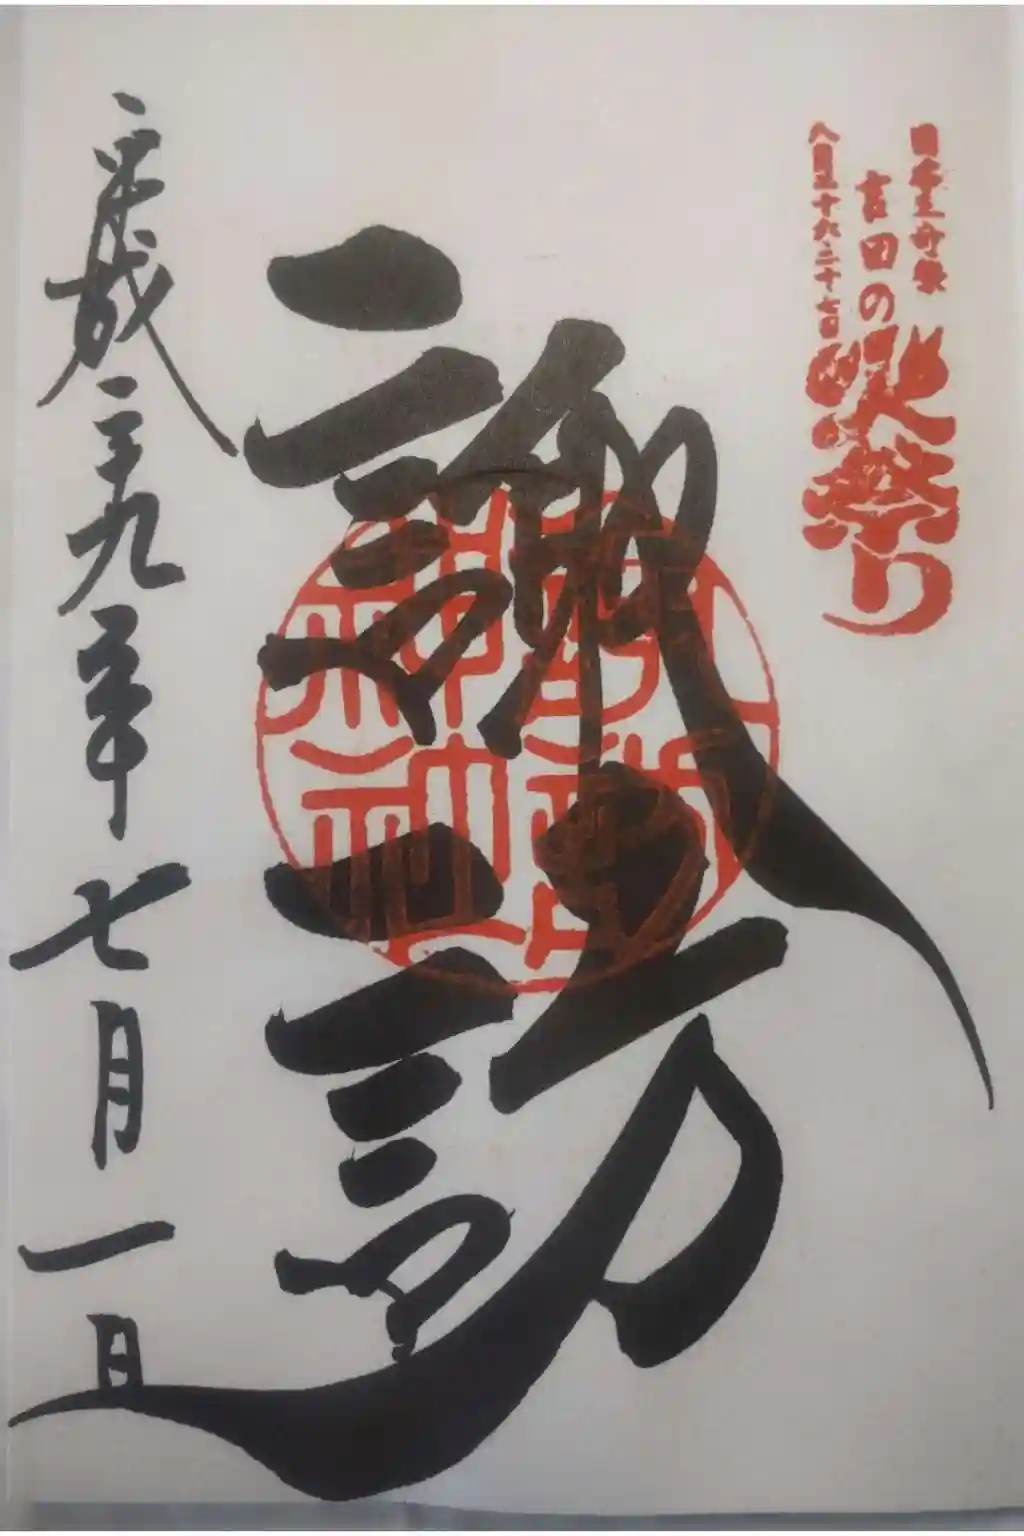 日本三奇祭
吉田の火祭り
八月二十六二十七日
諏訪
平成二十九年七月一日